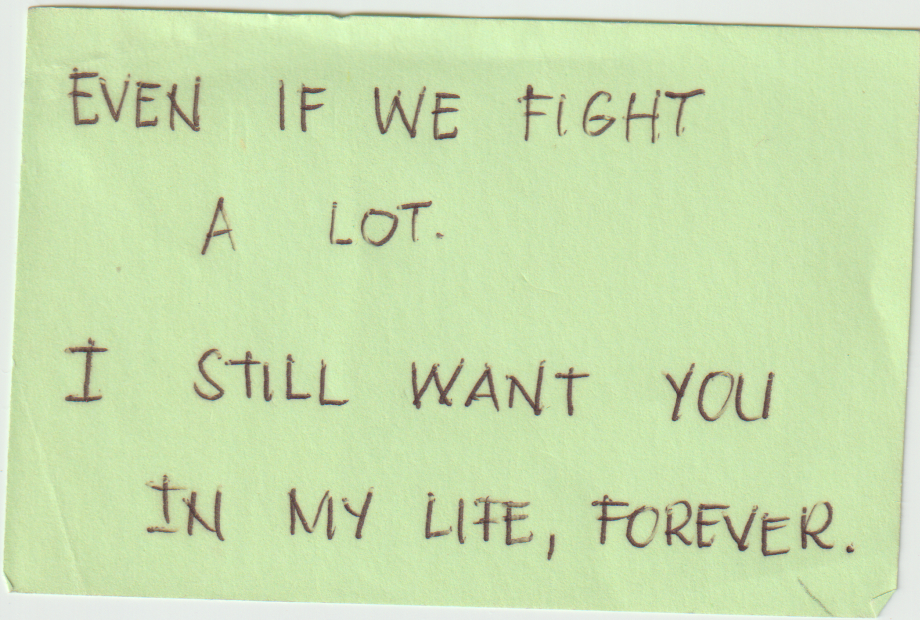 EVEN IF WE FIGHT
A LOT.
I STILL WANT YOU
IN MY LIFE, FOREVER.